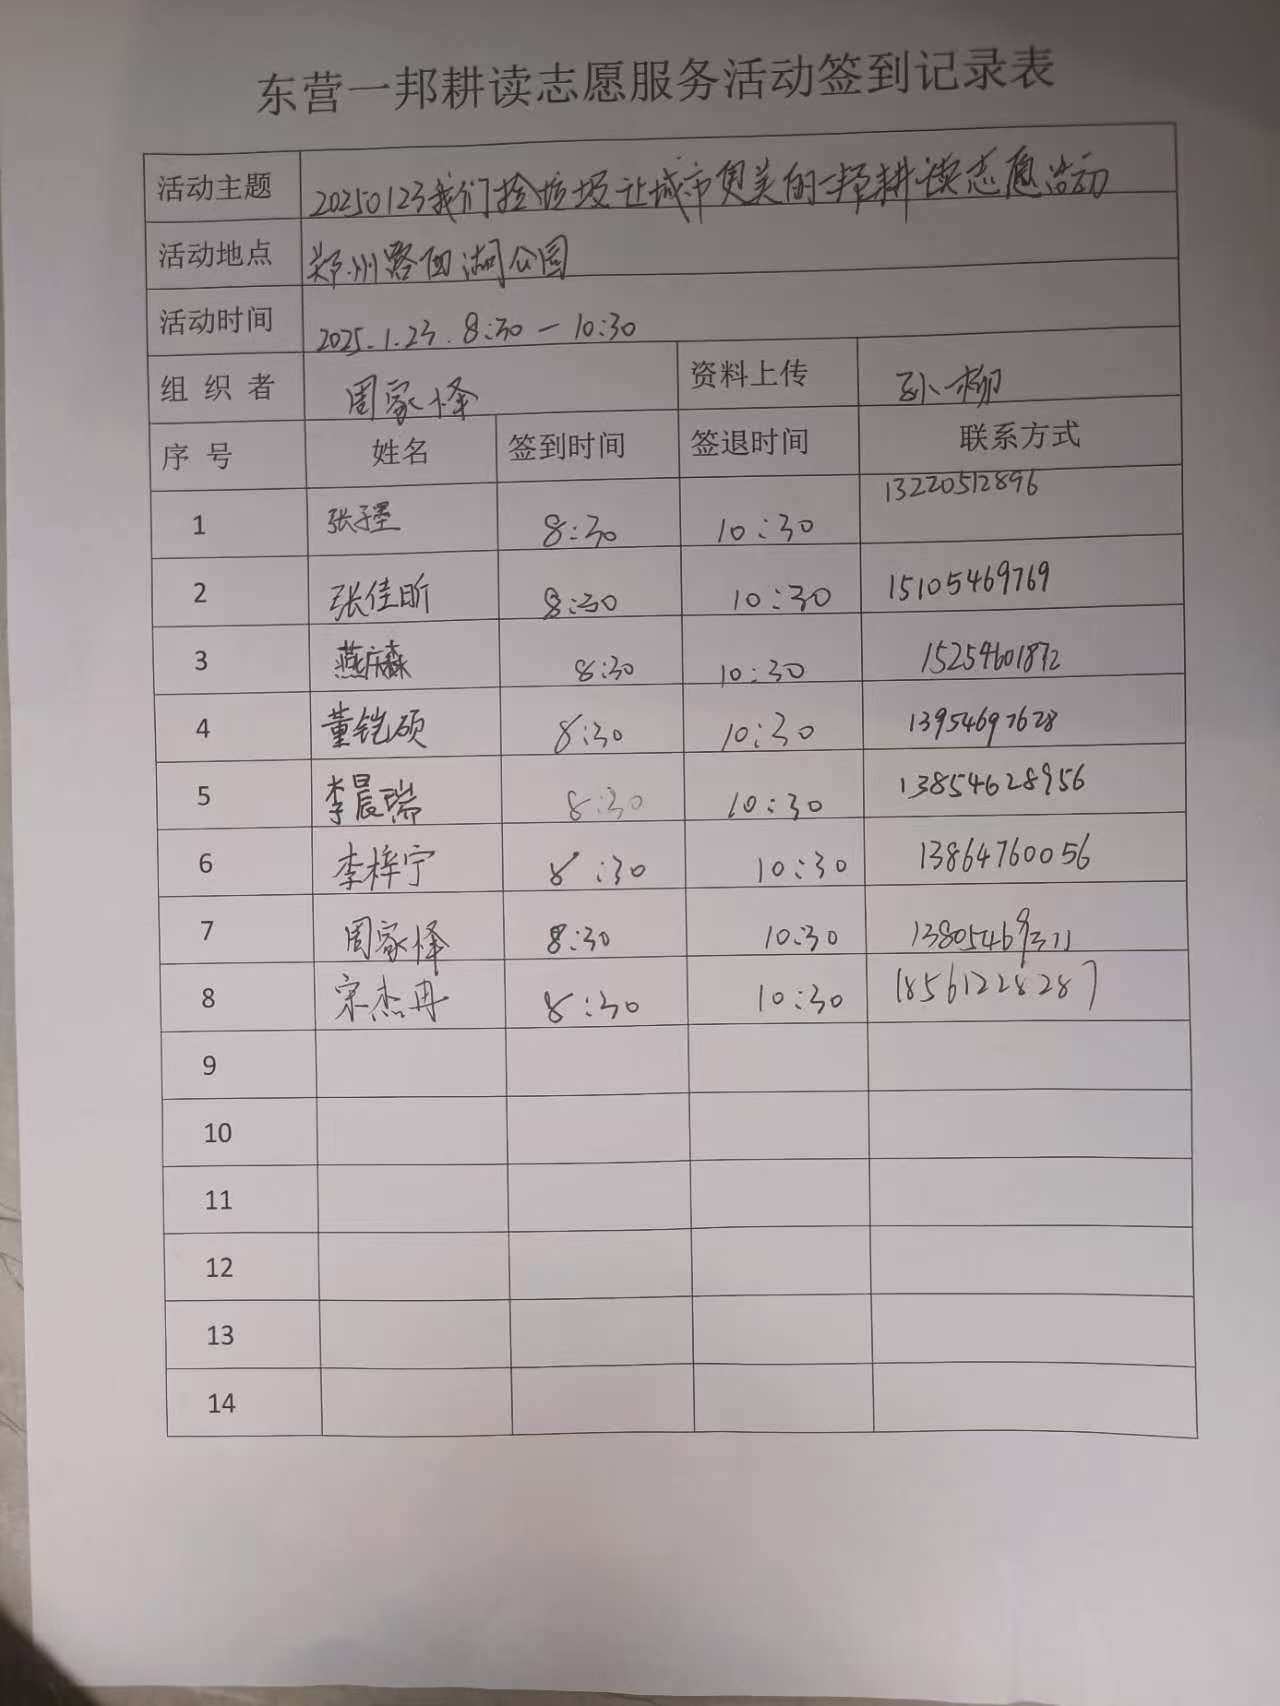 东营一邦耕读志愿服务活动签到记录表
活动主题 20250123我们捡垃圾让城市更美的一邦耕读志愿活动
活动地点 郑州路西湖公园
活动时间 2025.1.23. 8:30 — 10:30
组 织 者 周家怿 资料上传 孙柳
序 号 姓名 签到时间 签退时间 联系方式
1 张子墨 8:30 10:30 13220512896
2 张佳昕 8:30 10:30 15105469769
3 燕庆森 8:30 10:30 15254601872
4 董铠硕 8:30 10:30 13954697628
5 李晨瑞 8:30 10:30 13854628956
6 李梓宁 8:30 10:30 13864760056
7 周家怿 8:30 10:30 13805469311
8 宋杰冉 8:30 10:30 18561228287
9
10
11
12
13
14